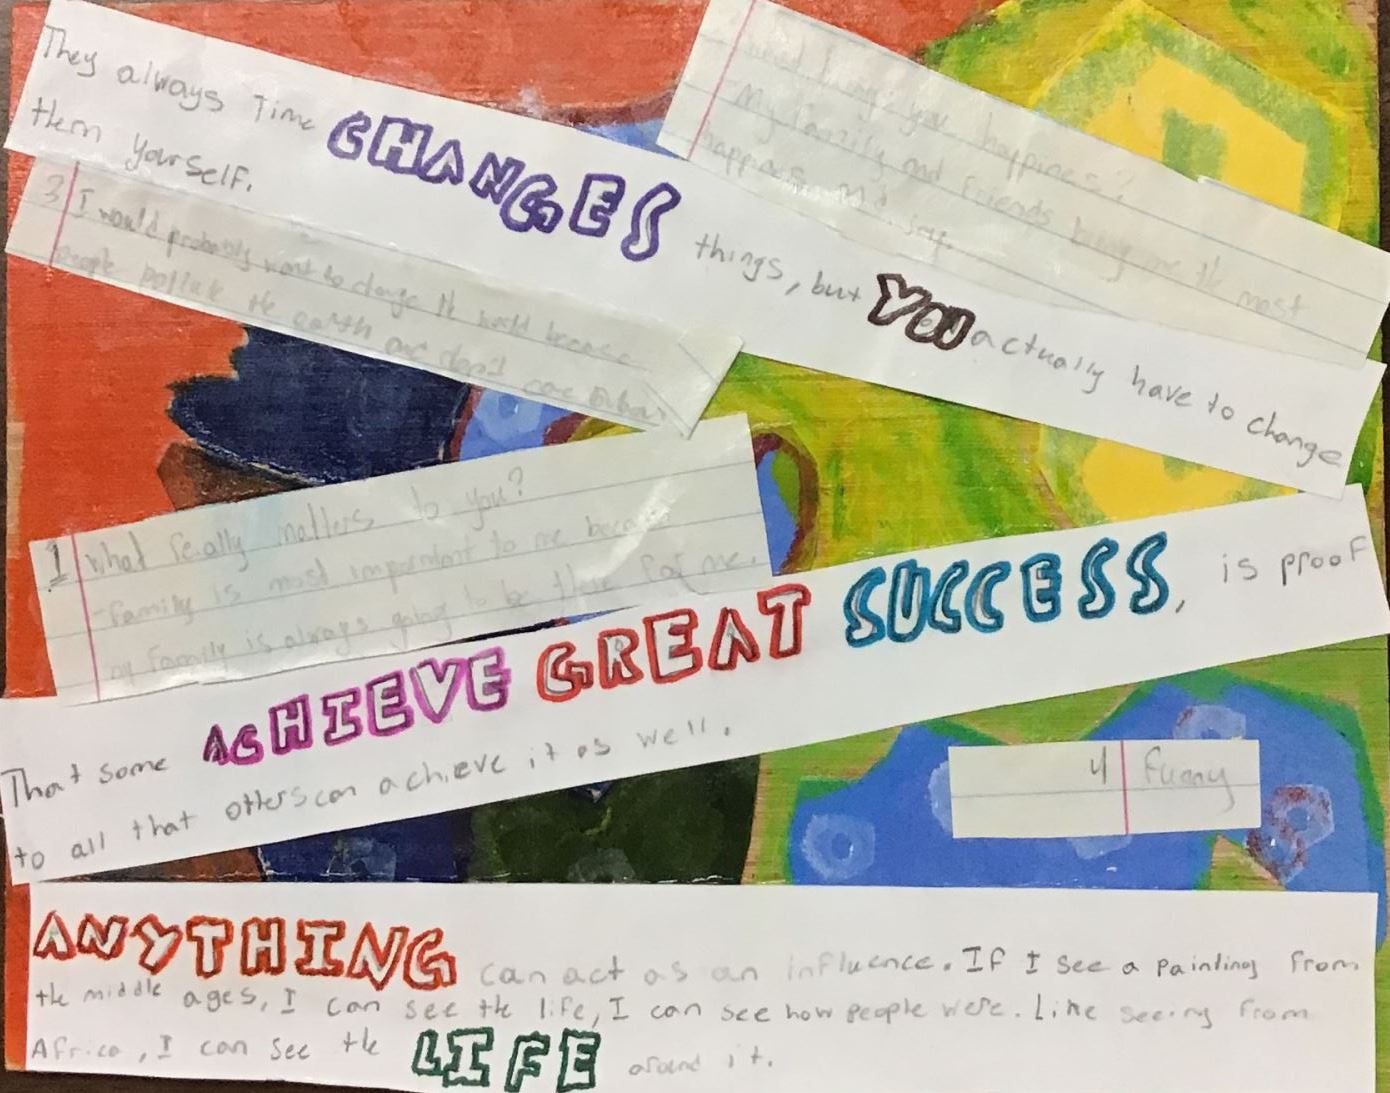 They always Time CHANGES things, but YOU actually have to change
them yourself.
what brings you happiness?
My family and friends bring me the most
happiness and joy.
3 I would probably want to change the world because
people pollute the earth and don't care
1 What really matters to you?
-Family is most important to me because
my family is always going to be there for me.
That some ACHIEVE GREAT SUCCESS, is proof
to all that others can achieve it as well.
4 Funny
ANYTHING can act as an influence. If I see a painting from
the middle ages, I can see the life, I can see how people were. Like seeing from
Africa, I can see the LIFE around it.